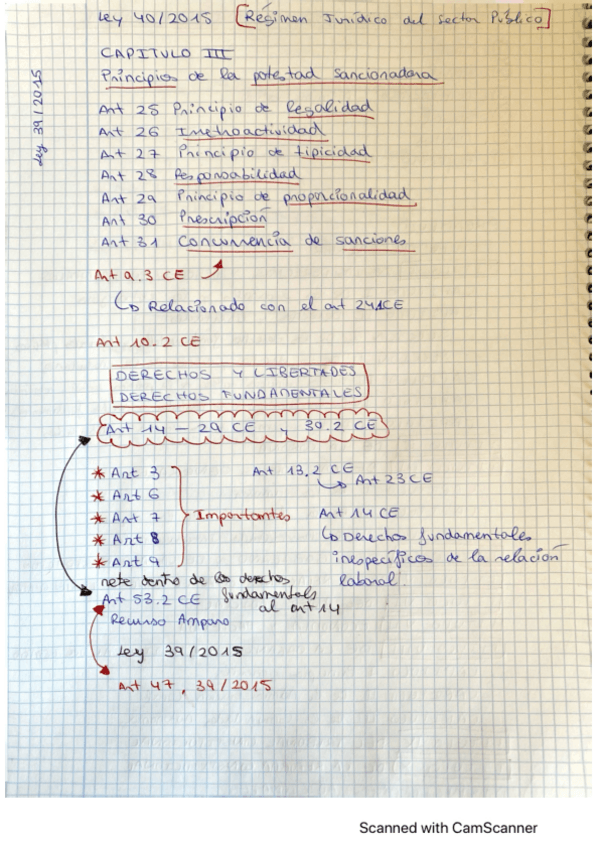 Ley 40/2015 [Régimen Jurídico del Sector Público]
Ley 39/2015
CAPITULO III
Principios de la potestad sancionadora
Art 25 Principio de legalidad
Art 26 Irretroactividad
Art 27 Principio de tipicidad
Art 28 Responsabilidad
Art 29 Principio de proporcionalidad
Art 30 Prescripción
Art 31 Concurrencia de sanciones
Art 9.3 CE
Relacionado con el art 24.1CE
Art 10.2 CE
DERECHOS Y LIBERTADES
DERECHOS FUNDAMENTALES
Art 14 - 29 CE y 30.2 CE
* Art 3
* Art 6
* Art 7
* Art 8
* Art 9
Importantes
Art 13.2 CE
Art 23 CE
Art 14 CE
Derechos fundamentales
inespecíficos de la relación
laboral
mete dentro de los derechos
fundamentals
al art 14
Art 53.2 CE
Recurso Amparo
Ley 39/2015
Art 47, 39/2015
Scanned with CamScanner